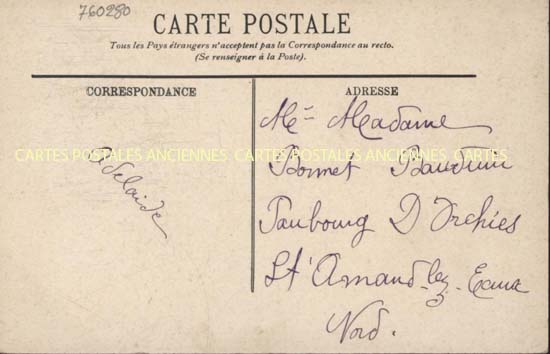 760280
CARTE POSTALE
Tous les Pays étrangers n'acceptent pas la Correspondance au recto.
(Se renseigner à la Poste).
CORRESPONDANCE
Adelaïde
ADRESSE
Madame
Bonnet Bauduin
Faubourg D'Orchies
St Amand-lez-Eaux
Nord.
CARTES POSTALES ANCIENNES CARTES POSTALES ANCIENNES CARTES